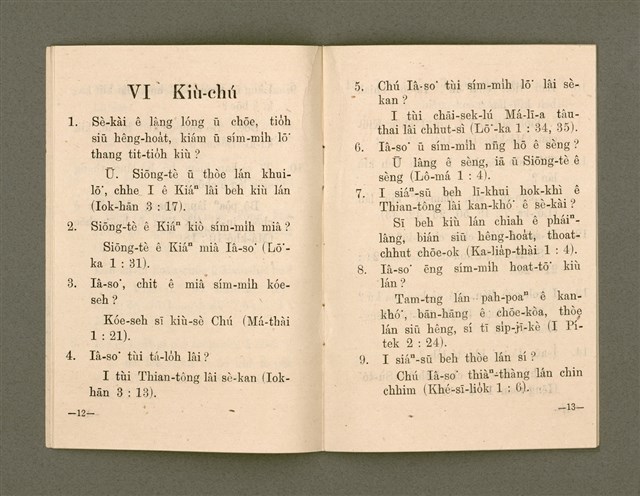 VI Kiù-chú
1. Sè-kài ê lâng lóng ū chōe, tio̍h
siū hêng-hoa̍t, kiám ū sím-mi̍h lō͘
thang tit-tio̍h kiù ?
Ū. Siōng-tè ū thòe lán khui-
lō͘, chhe I ê Kiáⁿ lâi beh kiù lán
(Iok-hān 3 : 17).
2. Siōng-tè ê Kiáⁿ kiò sím-mi̍h miâ ?
Siōng-tè ê Kiáⁿ miâ Iâ-so͘ (Lō͘-
ka 1 : 31).
3. Iâ-so͘, chit ê miâ sím-mi̍h kóe-
seh ?
Kóe-seh sī kiù-sè Chú (Má-thài
1 : 21).
4. Iâ-so͘ tùi tá-lo̍h lâi ?
I tùi Thian-tông lâi sè-kan (Iok-
hān 3 : 13).
—12—
5. Chú Iâ-so͘ tùi sím-mi̍h lō͘ lâi sè-
kan ?
I tùi chāi-sek-lú Má-lī-a tâu-
thai lâi chhut-sì (Lō͘-ka 1 : 34, 35).
6. Iâ-so͘ ū sím-mi̍h nn̄g hō ê sèng ?
Ū lâng ê sèng, iā ū Siōng-tè ê
sèng (Lô-má 1 : 4).
7. I siáⁿ-sū beh lī-khui hok-khì ê
Thian-tông lâi kan-khó͘ ê sè-kài ?
Sī beh kiù lán chiah ê pháiⁿ-
lâng, bián siū hêng-hoa̍t, thoat-
chhut chōe-ok (Ka-lia̍p-thài 1 : 4).
8. Iâ-so͘ ēng sím-mi̍h hoat-tō͘ kiù
lán ?
Tam-tng lán pah-poaⁿ ê kan-
khó͘, bān-hāng ê chōe-kòa, thòe
lán siū hêng, sí tī si̍p-jī-kè (I Pí-
tek 2 : 24).
9. I siáⁿ-sū beh thòe lán sí ?
Chú Iâ-so͘ thiàⁿ-thàng lán chin
chhim (Khé-sī-lio̍k 1 : 6).
—13—